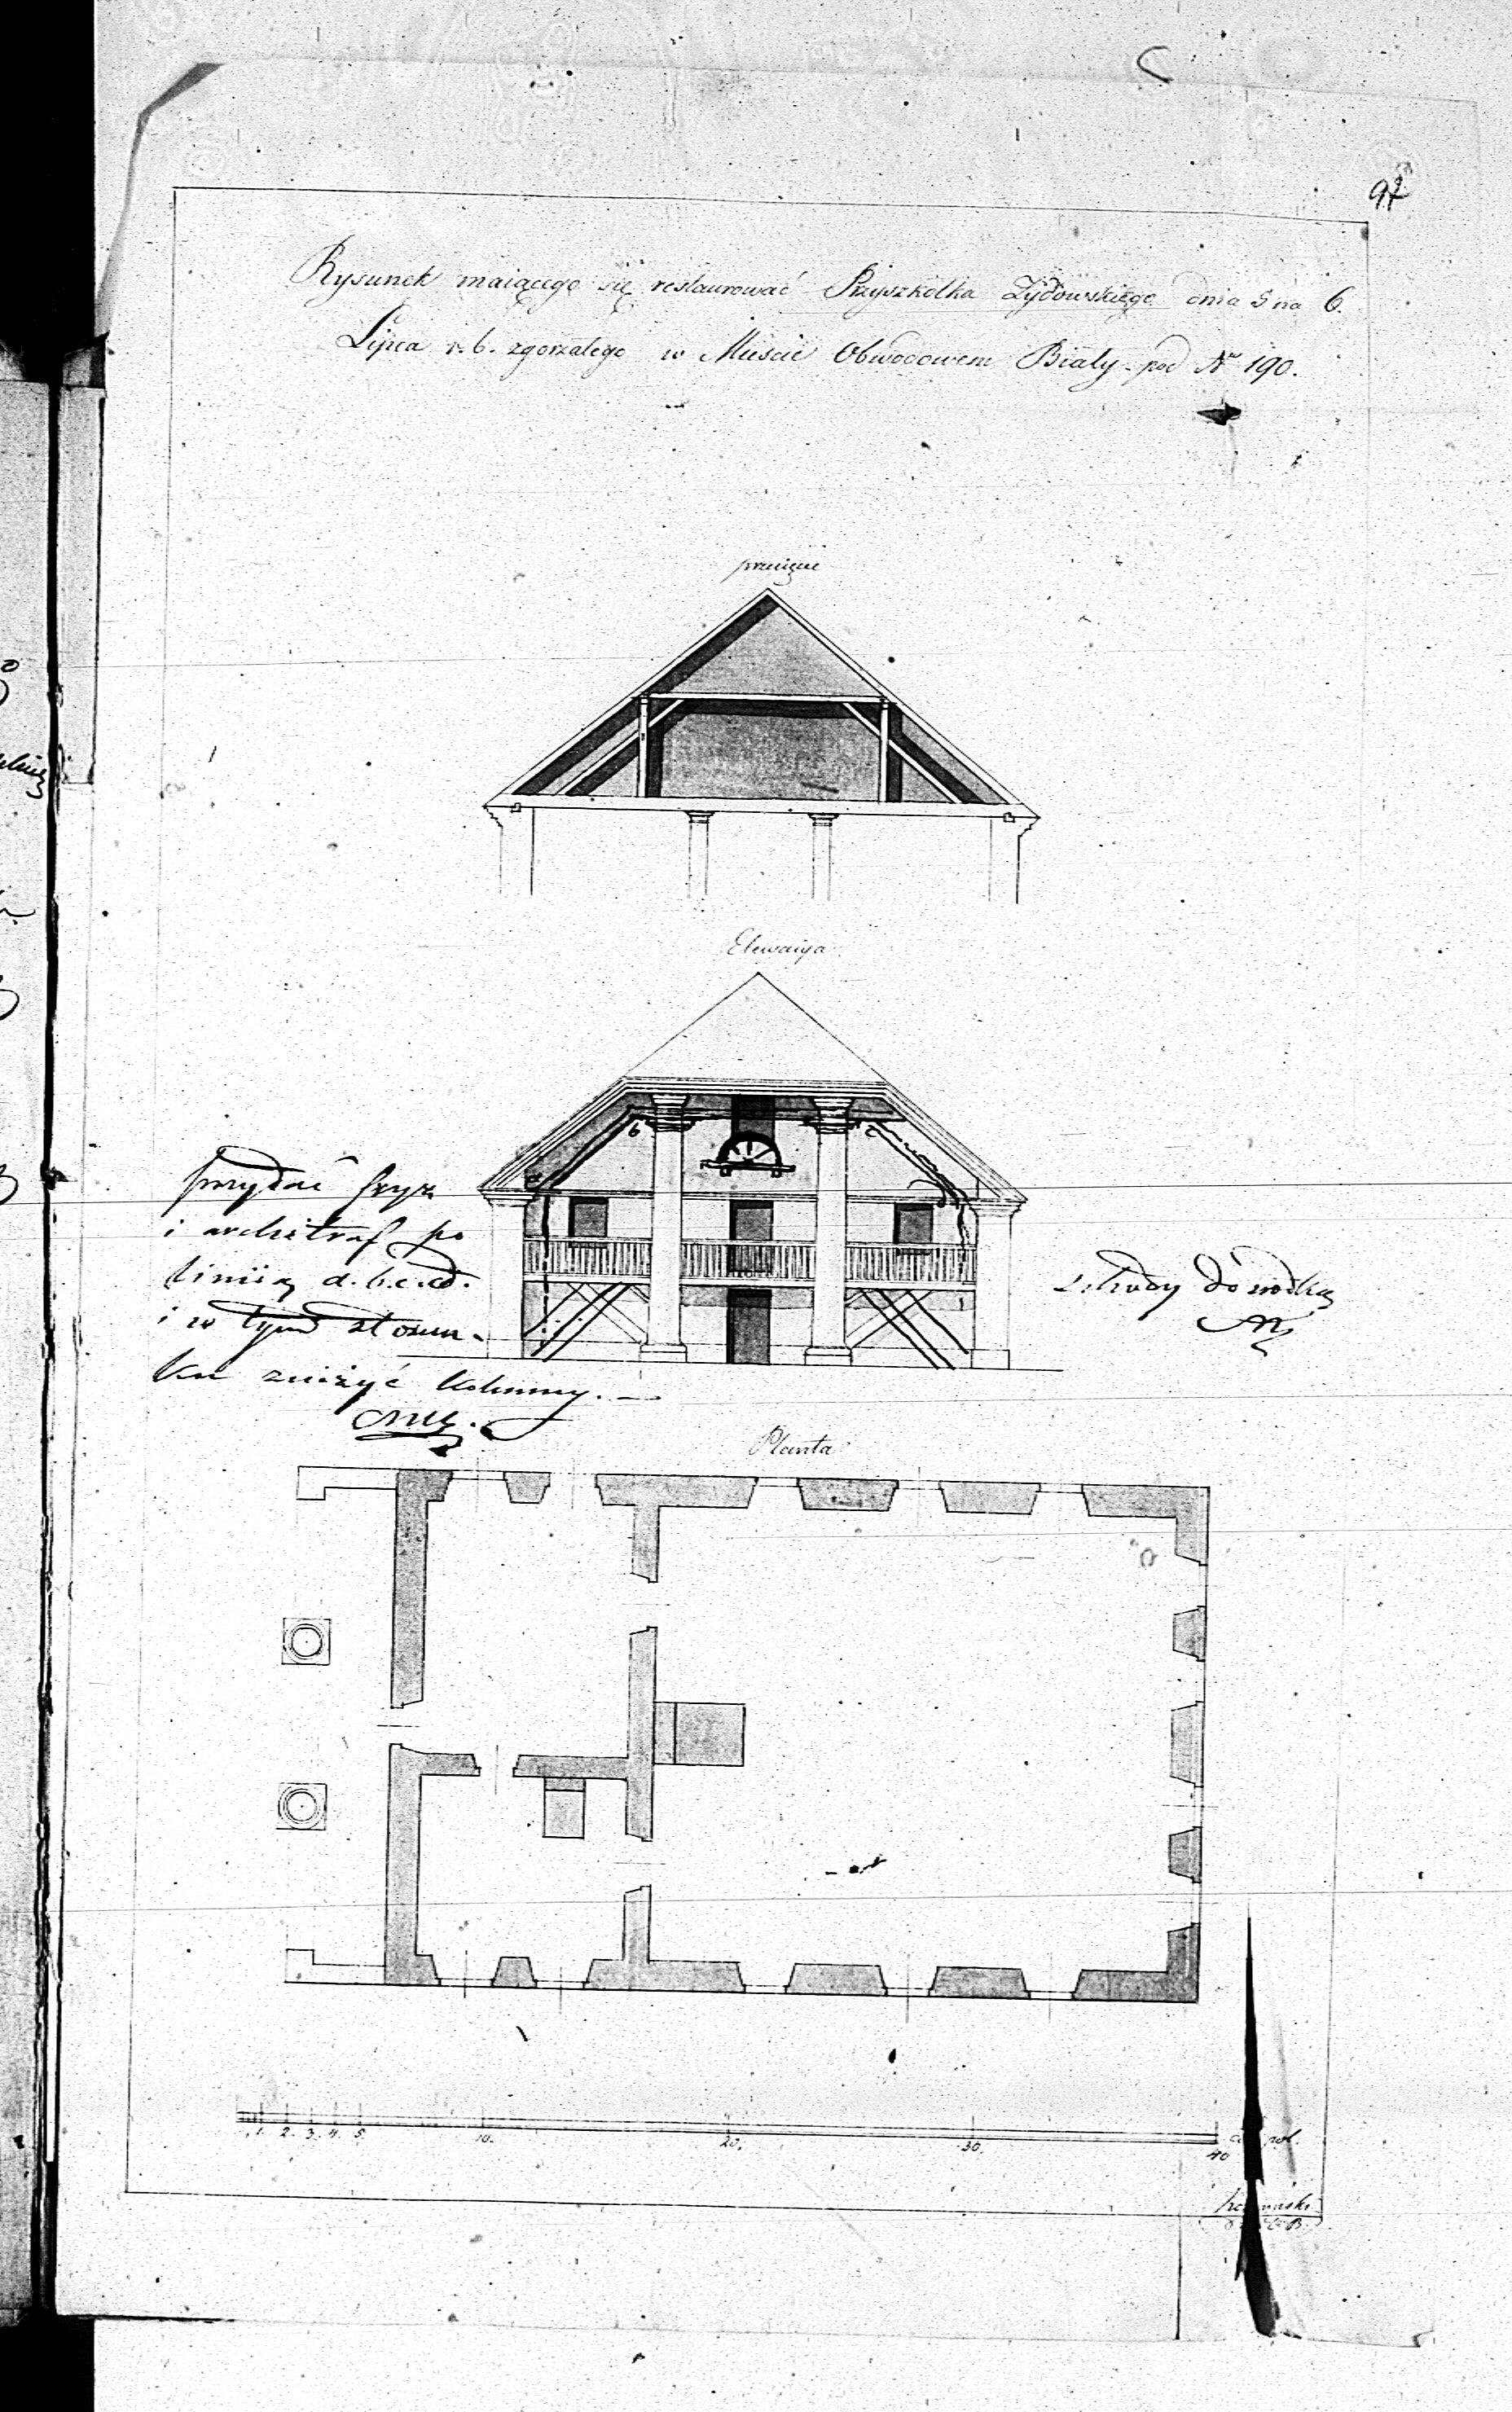 97
Rysunek maiącego się restaurować Przyszkolka Żydowskiego dnia 5 na 6.
Lipca r. b. zgorzałego w Mieście Obwodowem Biały pod Nr 190.
Elewaiya
b
c
a
przydać fryz
i architraf po
linii a. b. c. d.
i w tym stosun-
ku zniżyć kolumny. —
schody do środka
Planta
1. 2. 3. 4. 5. 10. 20. 30. 40
pol.